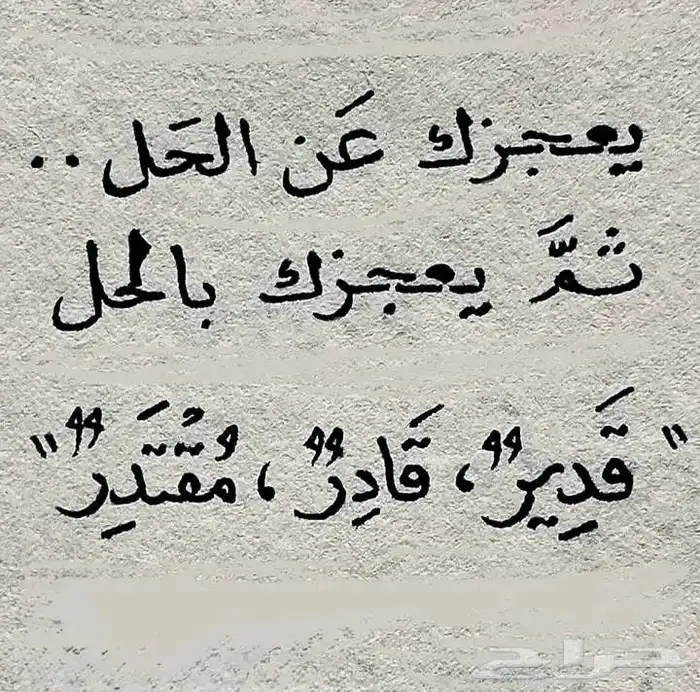 يعجزك عَن الحَل ..
ثمَّ يعجزك بالحل
" قَدِيرٌ، قَادِرٌ، مُقتَدِرٌ "
حراج